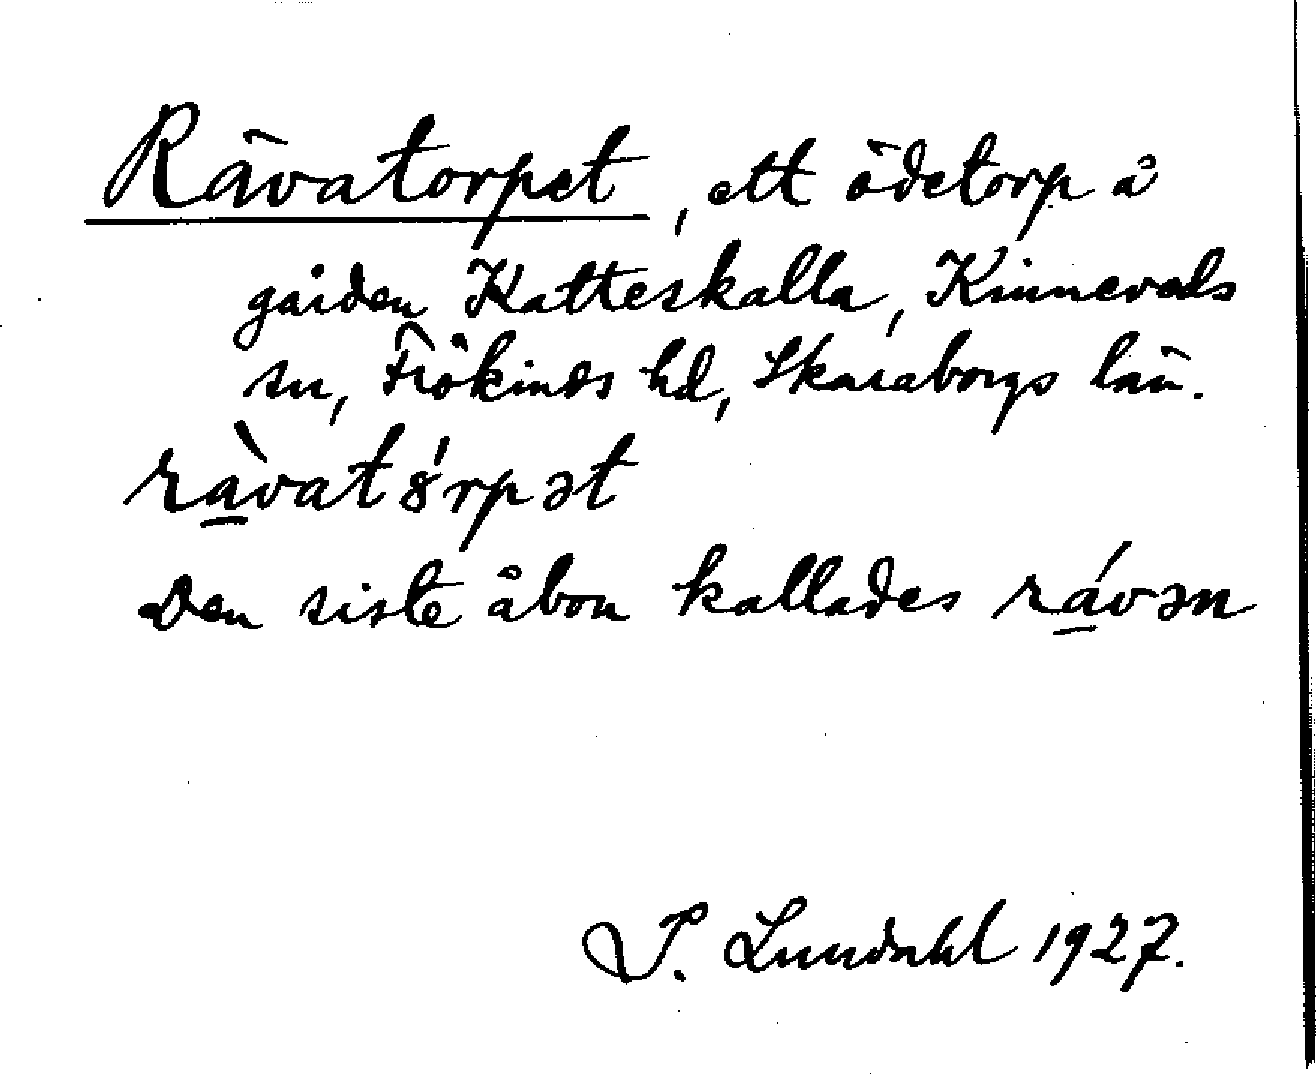 Rävatorpet, ett ödetorp å
gården Katteskalla, Kinneveds
sn, Frökinds hd, Skaraborgs län.
rà̲vat8́rpət
Den siste åbon kallades rá̲vən
P. Lundahl 1927.